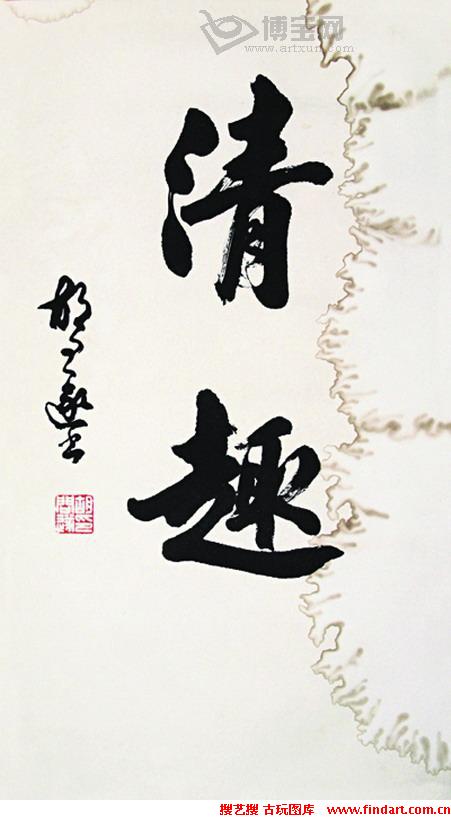 博宝网
www.artxun.com
清趣
胡问遂书
搜艺搜 古玩图库 www.findart.com.cn